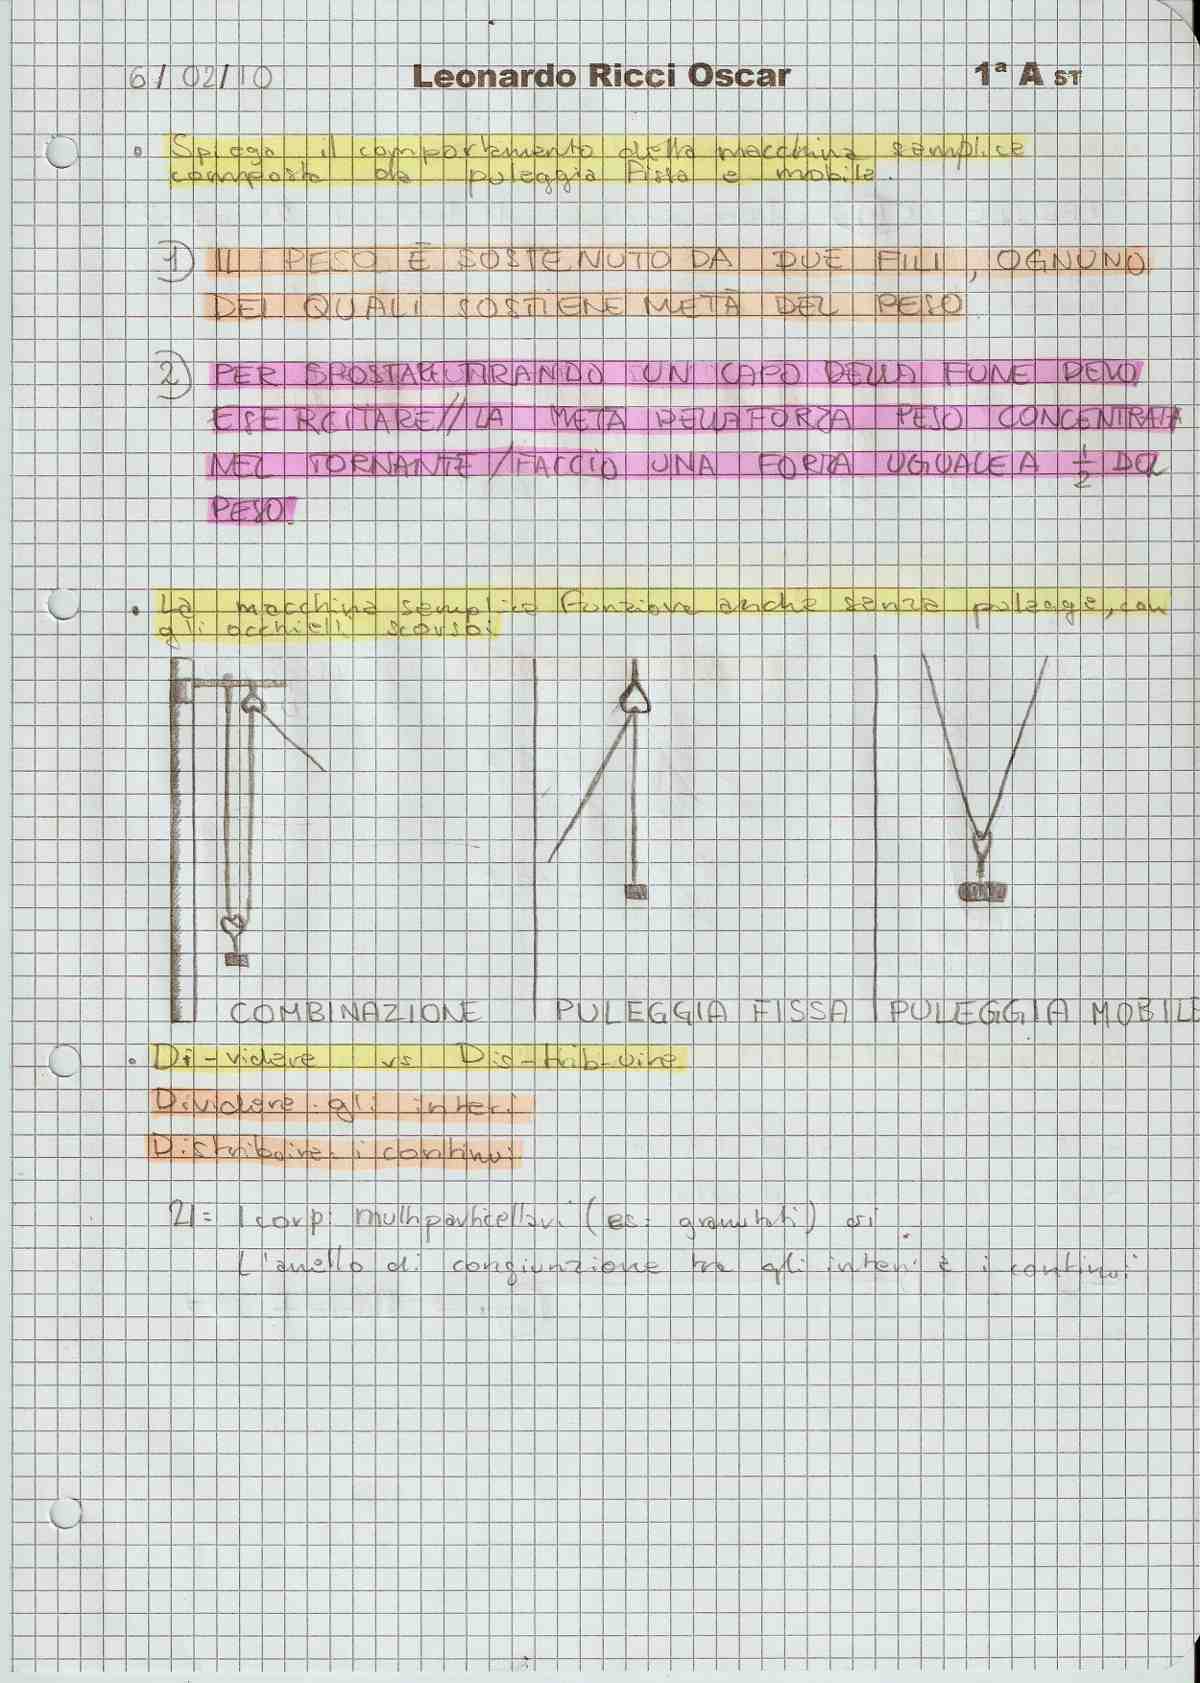 6/02/10 Leonardo Ricci Oscar 1ª A ST
Spiega il comportamento della macchina semplice
composta da puleggia fissa e mobile.
1) IL PESO È SOSTENUTO DA DUE FILI, OGNUNO
DEI QUALI SOSTIENE METÀ DEL PESO
2) PER TIRANDO UN CAPO DELLA FUNE DEVO
ESERCITARE//LA METÀ DELLA FORZA PESO CONCENTRATA
NEL TORNANTE/FACCIO UNA FORZA UGUALE A 1/2 DEL
PESO.
La macchina semplice funziona anche senza pulegge, con
gli occhielli
COMBINAZIONE PULEGGIA FISSA PULEGGIA MOBILE
Di-videre vs Dis-trib-uire
Dividere gli interi
Distribuire i continui
2)= I corpi multiparticellari (es: granulati)
L'anello di congiunzione tra gli interi è i continui